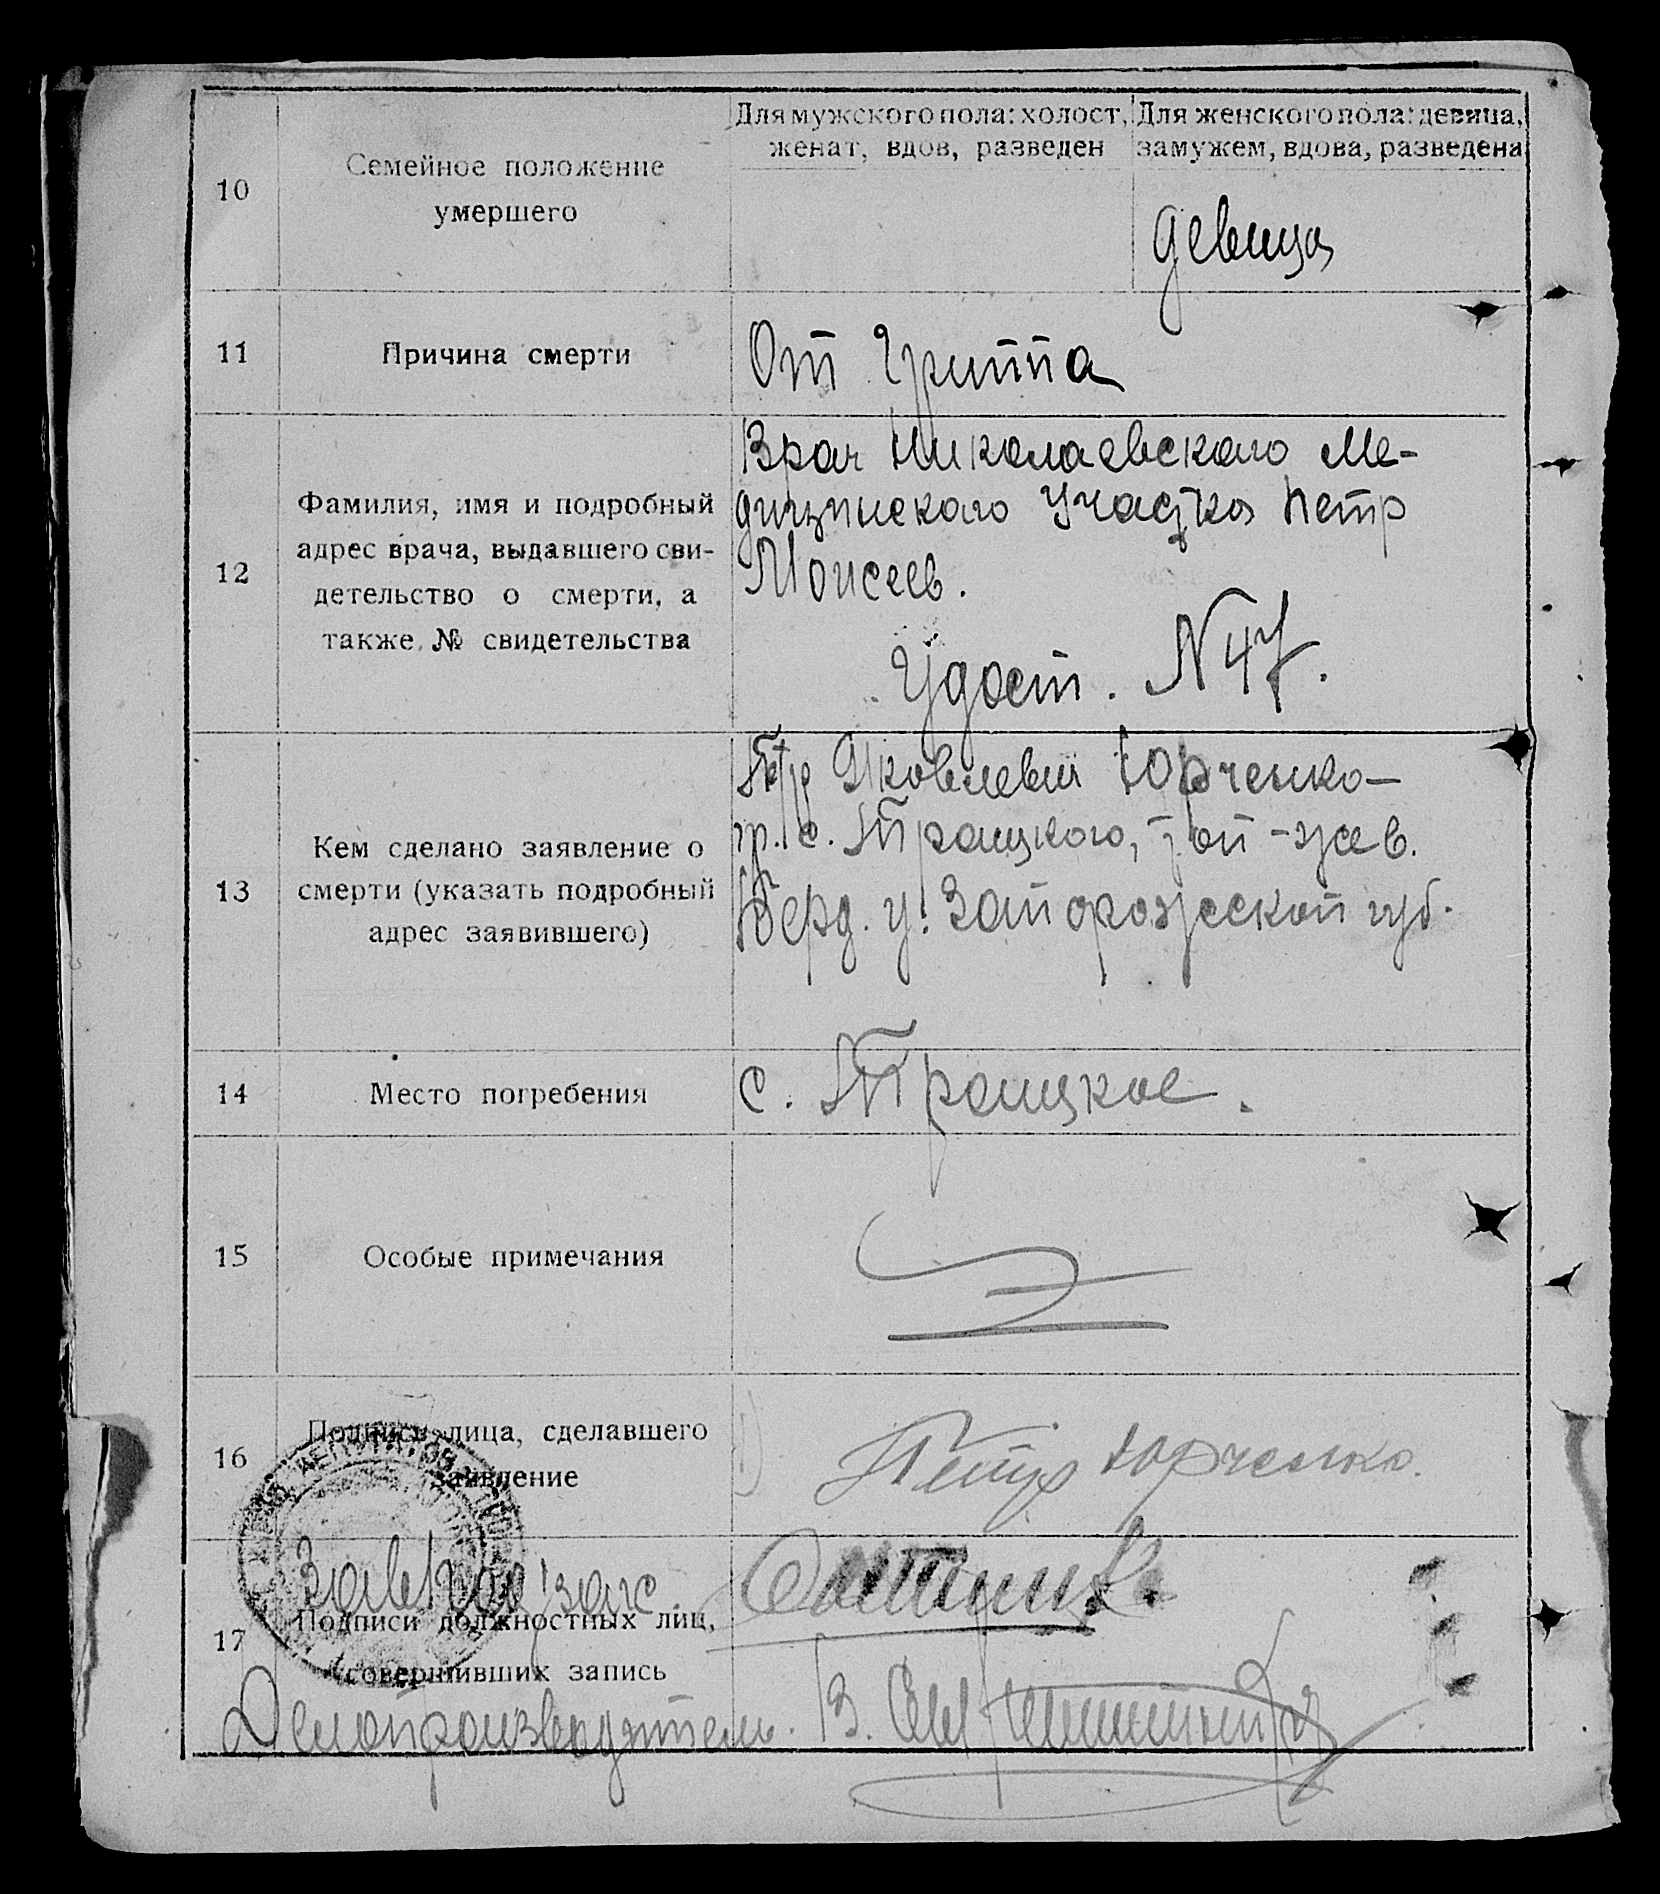 Для мужского пола: холост, женат, вдов, разведен
Для женского пола: девица, замужем, вдова, разведена
10
Семейное положение
умершего
девица
11
Причина смерти
От Гриппа
12
Фамилия, имя и подробный
адрес врача, выдавшего сви-
детельство о смерти, а
также № свидетельства
Врач Николаевского Ме-
дицинского Участка Петр
Моисеев.
Удост. N 47.
13
Кем сделано заявление о
смерти (указать подробный
адрес заявившего)
Петр Яковлевич Юрченко—
гр. с. Троицкого,
Берд. у. Запорожской губ.
14
Место погребения
с. Троицкое.
15
Особые примечания
16
Подписи лица, сделавшего
заявление
1)
Петр Юрченко.
17
Подписи должностных лиц,
совершивших запись
загс.
Делопроизводитель. В.